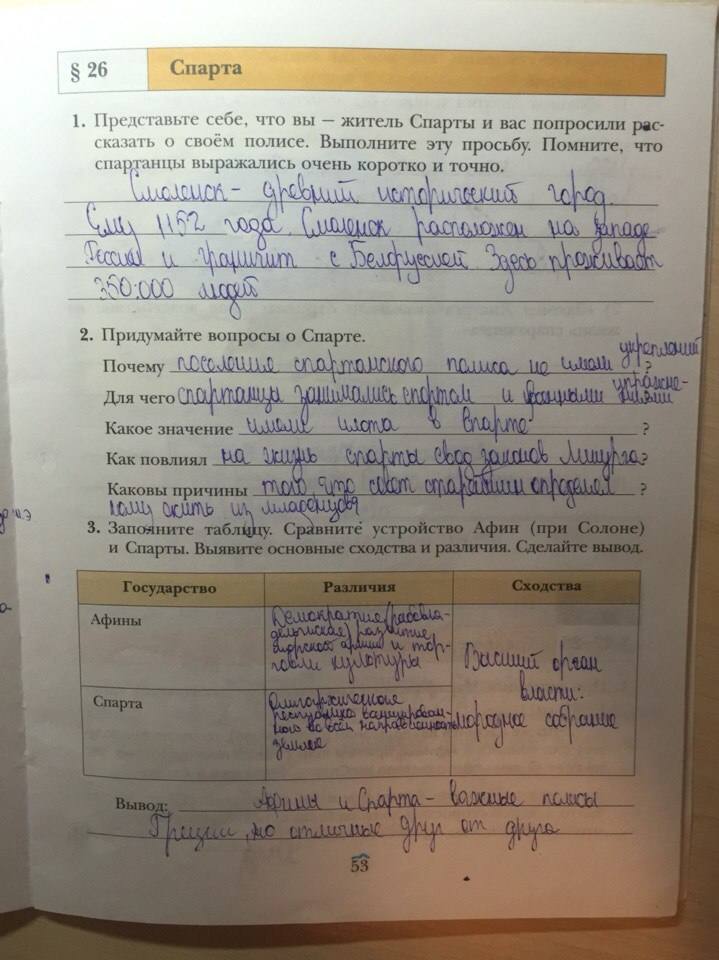 § 26 Спарта
1. Представьте себе, что вы – житель Спарты и вас попросили рас-
сказать о своём полисе. Выполните эту просьбу. Помните, что
спартанцы выражались очень коротко и точно.
Смоленск - древний исторический город.
Ему 1152 года. Смоленск расположен на западе
России и граничит с Белоруссией. Здесь проживает
350.000 людей
2. Придумайте вопросы о Спарте.
Почему поселения спартанского полиса не имели укреплений ?
Для чего спартанцы занимались спортом и военными упражне-
ниями
Какое значение имели илоты в Спарте ?
Как повлиял на жизнь спарты свод законов Ликурга ?
Каковы причины того, что совет старейшин определял ?
кому жить из младенцов
3. Заполните таблицу. Сравните устройство Афин (при Солоне)
и Спарты. Выявите основные сходства и различия. Сделайте вывод.
Государство Различия Сходства
Афины
Демократия (рабовла-
дельческая) развитие
морской армии и тор-
говли культуры
Спарта
Олигархическая
республика
землёй
Высший орган
власти:
народное собрание
Вывод: Афины и Спарта - важные полисы
Греции, но отличные друг от друга
53